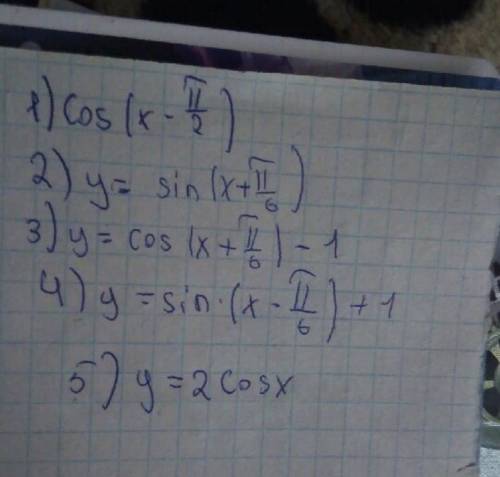 1) cos(x - π/2)
2) y = sin(x + π/6)
3) y = cos(x + π/6) - 1
4) y = sin·(x - π/6) + 1
5) y = 2cosx